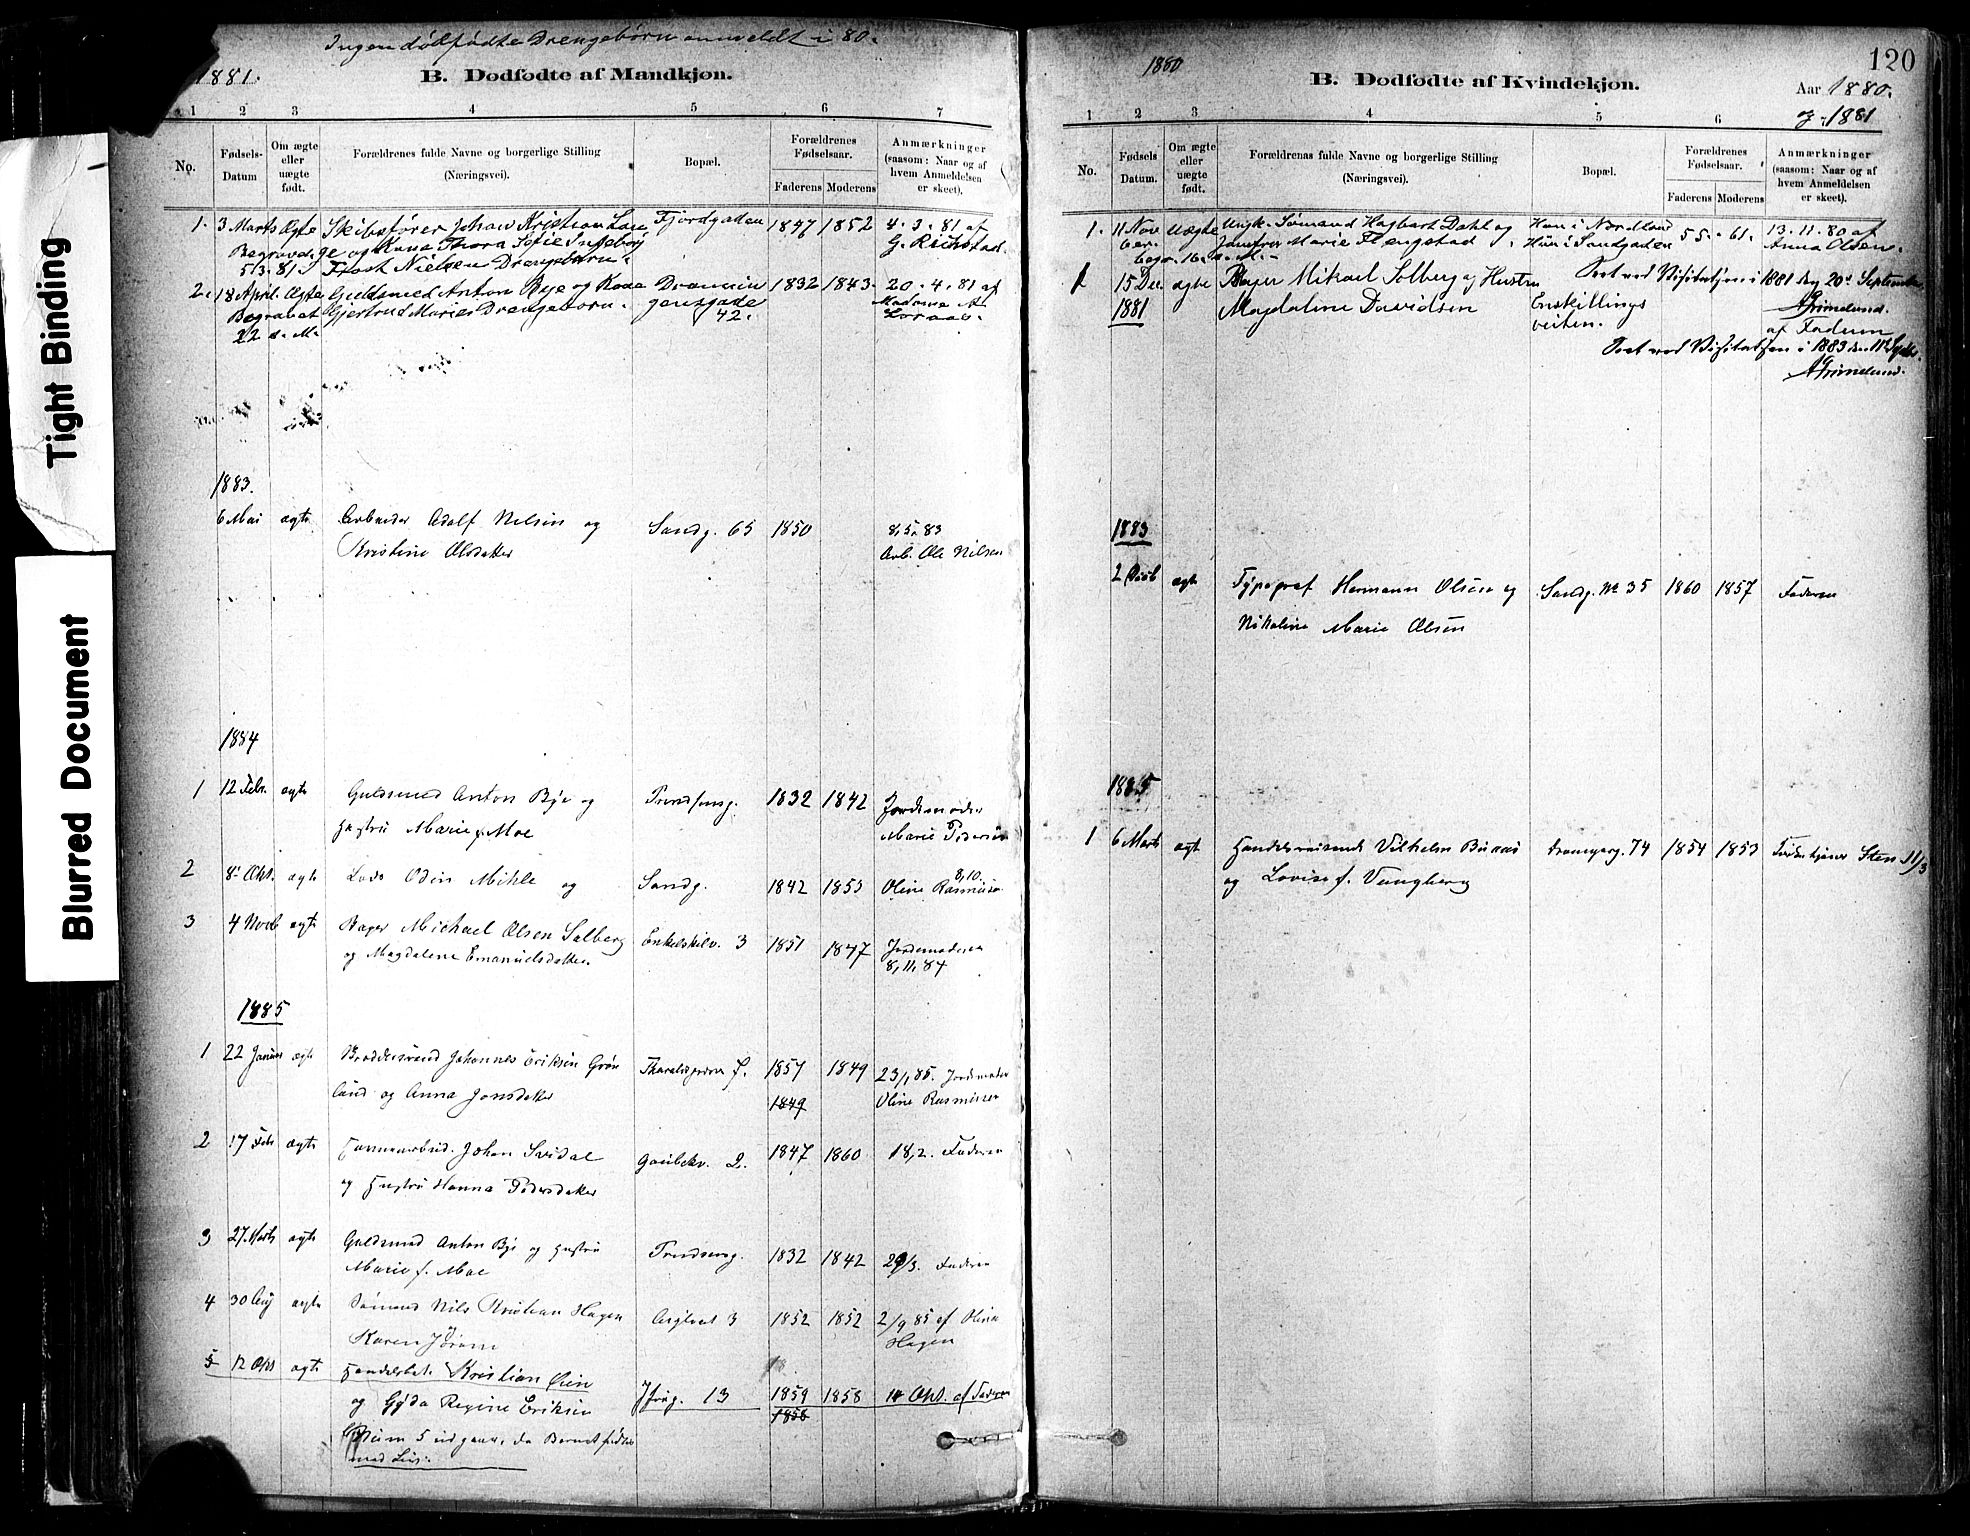 Tight Binding
Blurred Document
Ingen dødfødte Drengebørn anmeldt i 80.
1881.
B. Dødfødte af Mandkjøn.
1 2 3 4 5 6 7
No.
Fødsels-
Datum
Om ægte
eller
uægte
født.
Forældrenes fulde Navne og borgerlige Stilling
(Næringsvei).
Bopæl.
Forældrenes
Fødselsaar.
Faderens Moderens
Anmærkninger
(saasom: Naar og af
hvem Anmeldelsen
er skeet).
1. 3 Marts Ægte Skibsfører Johan Kristian Fjordgaden 1847 1852 4. 3. 81 af
Begravet og Kona Thora Sofie Ingeborg G. Reichstad.
5/3. 81. Frost Nielsen Drengebarn.
2. 18 April. Ægte Guldsmed Anton Bye og Kone 1832 1843. 20. 4. 81 af
Begravet Gjertrud Marie Drengebarn. 42. Madame A.
22 d. M.
1883.
6 Mai ægte Arbeider Adolf Nilsen og Sandg. 65 1850 8,5. 83
Kristine Olsdatter Arb. Ole Nilsen
1884
1 12 Febr. ægte Guldsmed Anton Bye og 1832 1842 Jordemoder
Hustru Marie f. Moe Marie Pedersen
2 8. Okt. ægte Lods Odin Mihle og Sandg. 1842 1853 8,10. Oline Rasmussen
3 4 Novb ægte Bager Michael Olsen Solberg Enkelskilv. 3 1851 1847 Jordemoderen
og Magdalene Emanuelsdatter. 8,11,84
1885
1 22 Januar ægte Johannes Eriksen Grøn 1857 1849 23/1 85. Jordemoder
lund og Anna Jonsdatter 1849 Oline Rasmussen
2 17 Feb ægte Johan 1847 1860 18,2. Faderen
og Hustru Hanna Pedersdatter
3 27. Marts ægte Guldsmed Anton Bye og Hustru 1832 1842 29/3. Faderen
Marie f. Moe
4 30 Aug ægte Sømand Nils Kristian Hagen 3 1852 1852 2/9 85 af Olina
Karen Hagen
5 12 Okt ægte Kristian Øien
og Gyda Regine Eriksen 13 1859 1858 14 Okt. af Faderen
1858
Num 5 udgaar, da Barnet fødtes
med Liv.
1880
B. Dødfødte af Kvindekjøn.
120
Aar 1880.
1881
1 2 3 4 5 6
No.
Fødsels
Datum.
Om ægte
eller
uægte
født.
Forældrenas fulde Navne og borgerlige Stilling
(Næringsvei).
Bopæl.
Forældrenes
Fødselsaar.
Faderens Moderens
Anmærkninger
(saasom: Naar og af
hvem Anmeldelsen
er skeet).
1. 11 Nov Uægte Ungk. Sømand Hagbart Dahl og Han i Nordland 55. 61. 13. 11. 80 af
ber. Jomfru Marie Flengstad. Hun i Sandgaden Anna Olsen.
begr. 16 d. M.
Seet ved Visitatsen i 1881 den 20de September
AGrimelund.
1 15 Dec. ægte Bager Mikael Solberg og Hustru Enskillings
1881 Magdaline Davidsen veiten. af Faderen
Seet ved Visitatsen i 1883 den 11te Septbr.
AGrimelund.
1883
2 ægte Typograf Hermann Olsen og Sandg. No 35 1860 1857 Faderen
Nikoline Marie Olsen
1885
1 6 Marts ægte Handelsreisende Vilhelm 74 1854 1853 11/3
og Lovise f. Vangberg